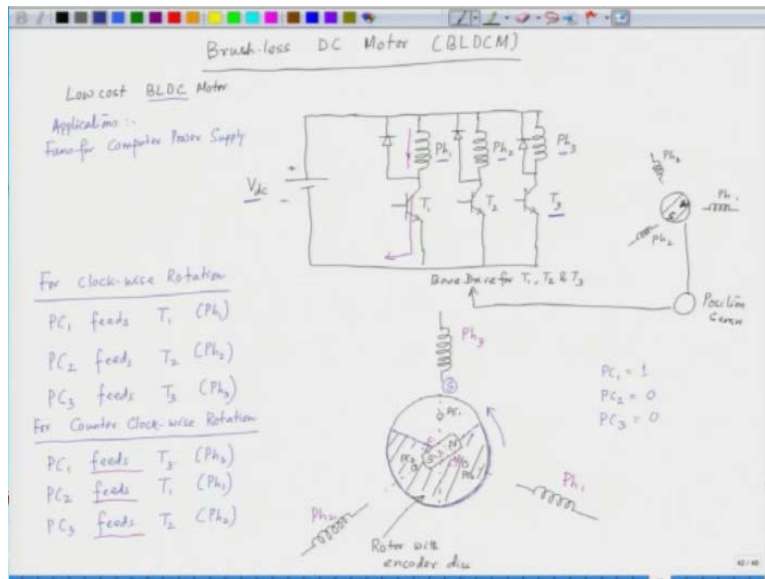 Brush-less DC Motor (BLDCM)
Low cost BLDC Motor
Applications:-
Fans for Computer Power Supply
+
Vdc
-
Ph1
Ph2
Ph3
T1
T2
T3
Ph3
Ph1
Ph2
N
S
Base Drive for T1, T2 & T3
Position
Sensor
For Clock-wise Rotation
PC1 feeds T1 (Ph1)
PC2 feeds T2 (Ph2)
PC3 feeds T3 (Ph3)
For Counter Clock-wise Rotation
PC1 feeds T3 (Ph3)
PC2 feeds T1 (Ph1)
PC3 feeds T2 (Ph2)
Ph3
S
PC1
PC2
PC3
N
S
PC1 = 1
PC2 = 0
PC3 = 0
Ph1
Ph2
Rotor with
encoder disc